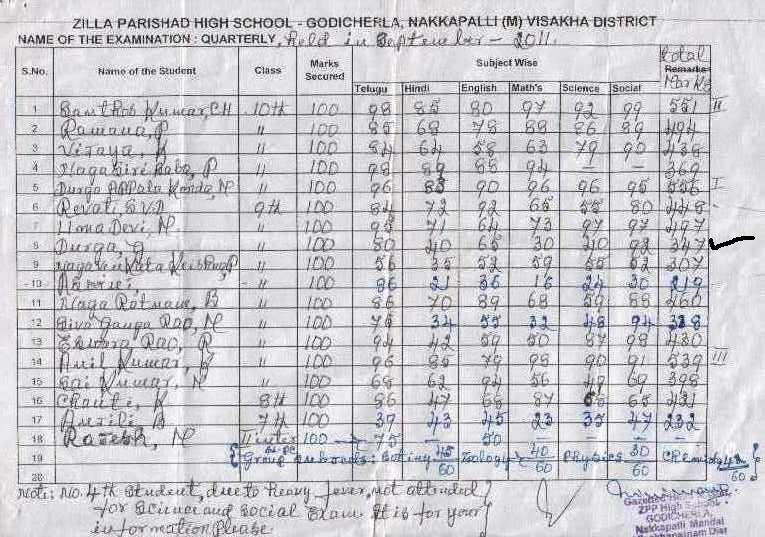 ZILLA PARISHAD HIGH SCHOOL - GODICHERLA, NAKKAPALLI (M) VISAKHA DISTRICT
NAME OF THE EXAMINATION : QUARTERLY, held in September - 2011.
S.No. Name of the Student Class Marks Secured Subject Wise Total Remarks Marks
Telugu Hindi English Math's Science Social
1 Kumar, CH 10th 100 98 85 80 97 92 99 551 II
2 Ramana, P " 100 85 68 78 88 86 89 494
3 Vijaya, " 100 84 64 58 63 79 90 438
4 Nagagiri Babu, P " 100 98 89 88 94 - - 369
5 Durga Appala Konda, N " 100 96 83 90 96 96 95 556 I
6 Revati 9th 100 84 72 92 65 55 80 448
7 Uma Devi, N. " 100 95 71 64 73 97 97 497
8 Durga, G " 100 80 40 65 30 40 92 347
9 " 100 56 35 52 59 55 52 307
10 " 100 86 21 36 16 24 30 219
11 Naga Ratnam, B " 100 86 70 89 68 59 88 460
12 Siva Ganga Rao, N " 100 75 34 55 32 48 94 338
13 Eswara Rao, R " 100 94 42 59 50 87 98 430
14 Anil Kumar, " 100 96 85 79 98 90 91 539 III
15 Sai Kumar, N " 100 68 62 94 56 49 69 398
16 8th 100 86 47 66 87 65 431
17 Anjili, B 7th 100 39 43 45 23 35 47 232
18 Rajesh, N II inter 100 → 75 - 50 - - -
19 { Group subjects: Botiny 45/60 Zoology 40/60 Physics 30/60
20
Note: No. 4th Student, due to heavy fever, not attended
for Science and Social Exam. It is for your
information please
ZPP High School
GODICHERLA,
Nakkapalli Mandal